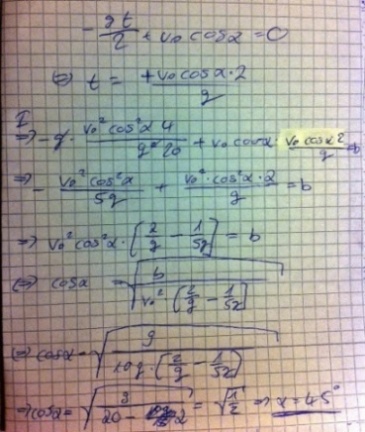 - gt/2 + v₀ cosα = 0
⇔ t = +v₀cosα·2 / g
I
⇒ -g · v₀² cos²α 4 / g² 20 + v₀ cosα · v₀ cosα 2 / g = b
⇒ - v₀² cos²α / 5g + v₀² · cos²α · 2 / g = b
⇒ v₀² cos²α · [2/g - 1/5g] = b
⇔ cosα = √(b / v₀² [2/g - 1/5g])
⇔ cosα = √(9 / 10g · [2/g - 1/5g])
⇒ cosα = √(9 / 20 - 2) = √(1/2) ⇒ α = 45°